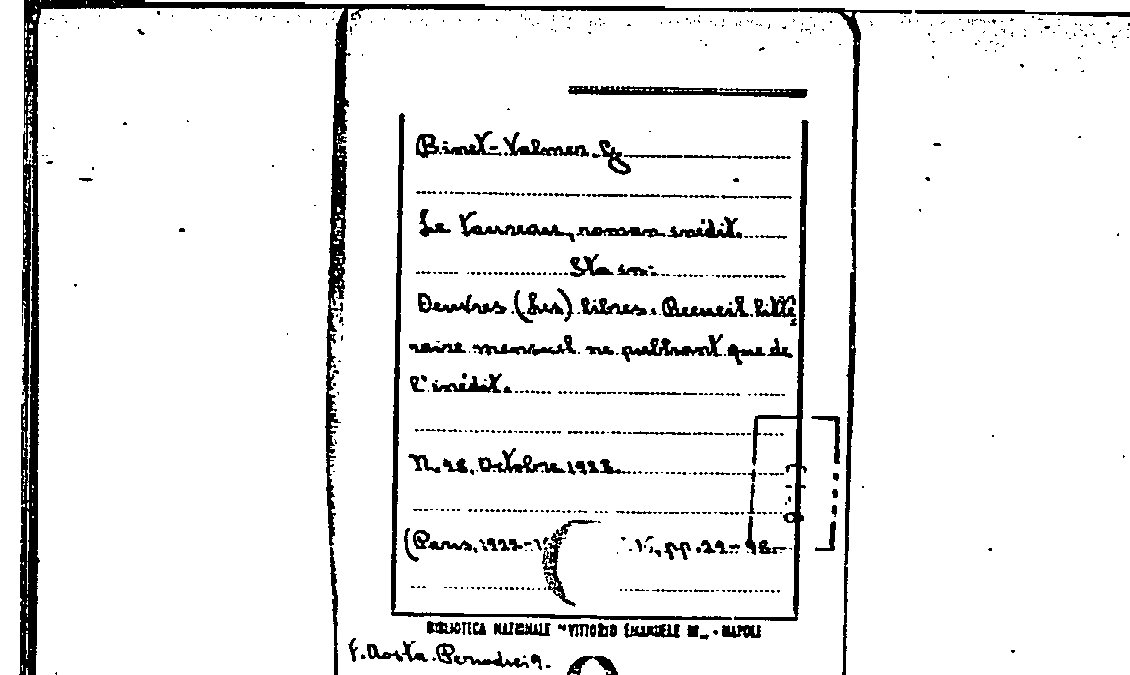 Binet-Valmer. G
Le Taureau, roman inédit.
Sta in:
Oeuvres (Les) libres. Recueil litté
raire mensuel ne publiant que de
l'inédit.
N. 98, Octobre 1928.
(Paris, pp.
BIBLIOTECA NAZIONALE "VITTORIO EMANUELE III" - NAPOLI
F. Aosta. Period.